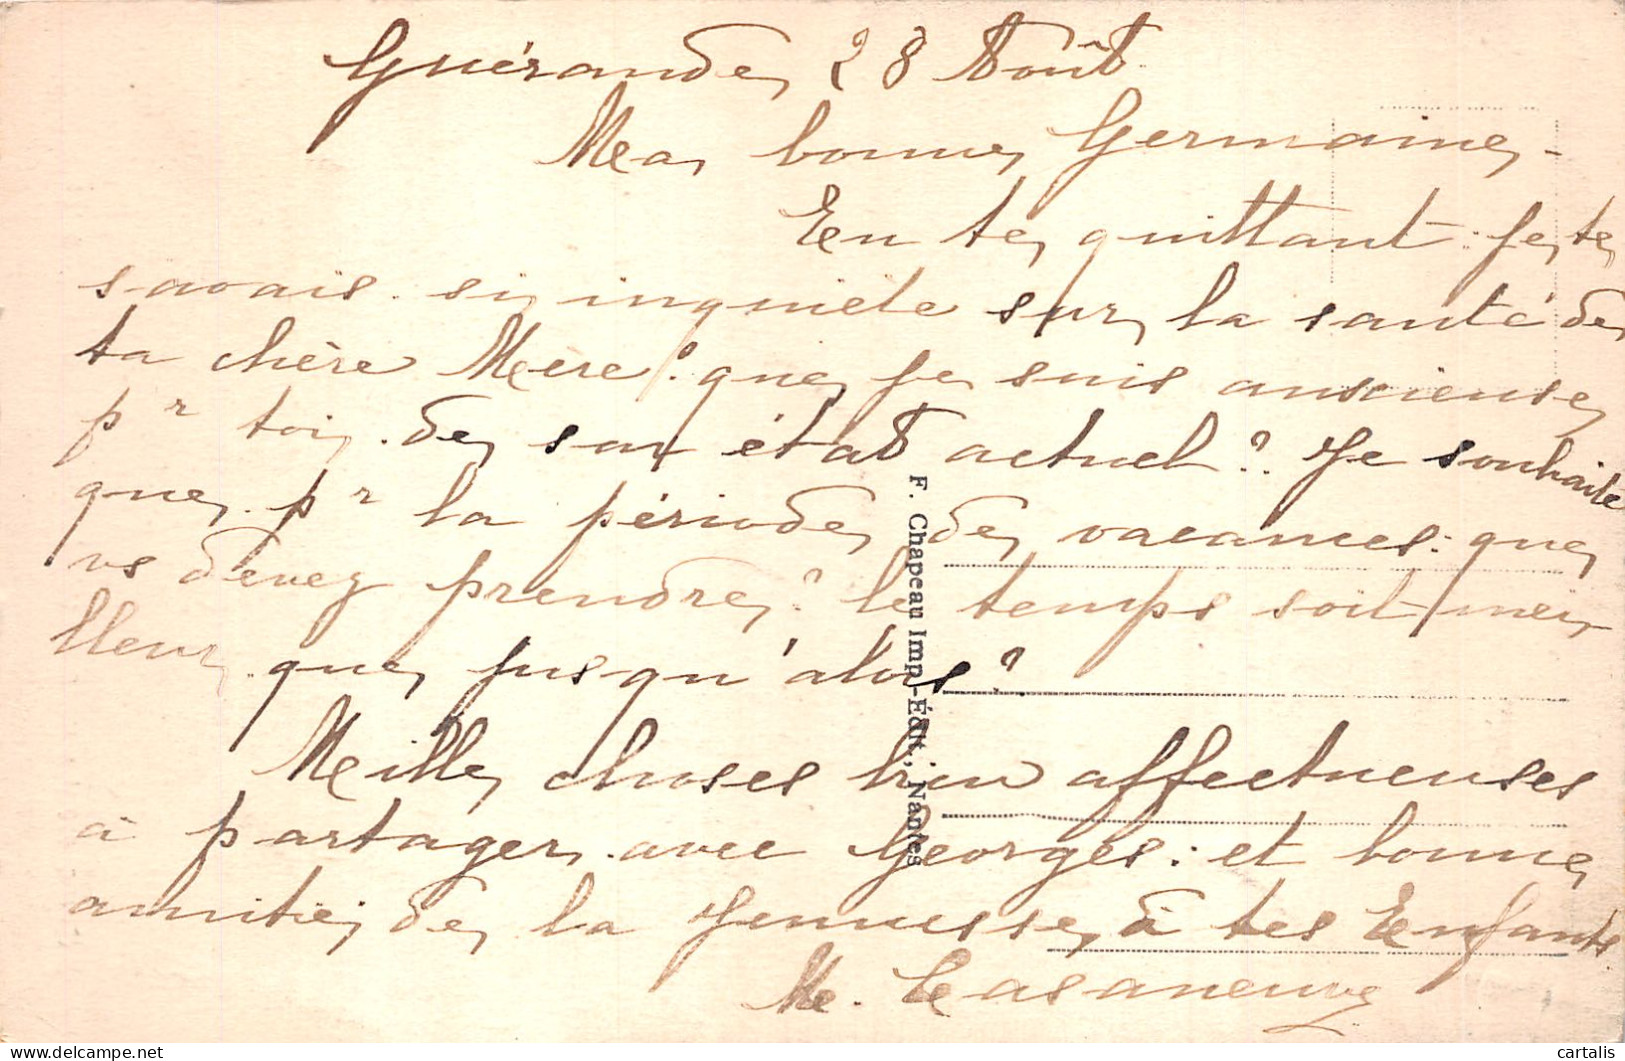 Guérande, 28 Août
Ma bonne Germaine,
En te quittant : je te
savais si inquiète sur la santé de
ta chère Mère : que je suis anxieuse,
pr toi, de son état actuel ? Je souhaite
que pr la période de vacances : que
vs devez prendre ? le temps soit mei
lleur que jusqu'alors ?
Mille choses bien affectueuses
à partager avec Georges : et bonne
amitié, de la Jeunesse, à tes Enfants.
M. Casaneuve
F. Chapeau Imp.-Édit., Nantes
cartalis